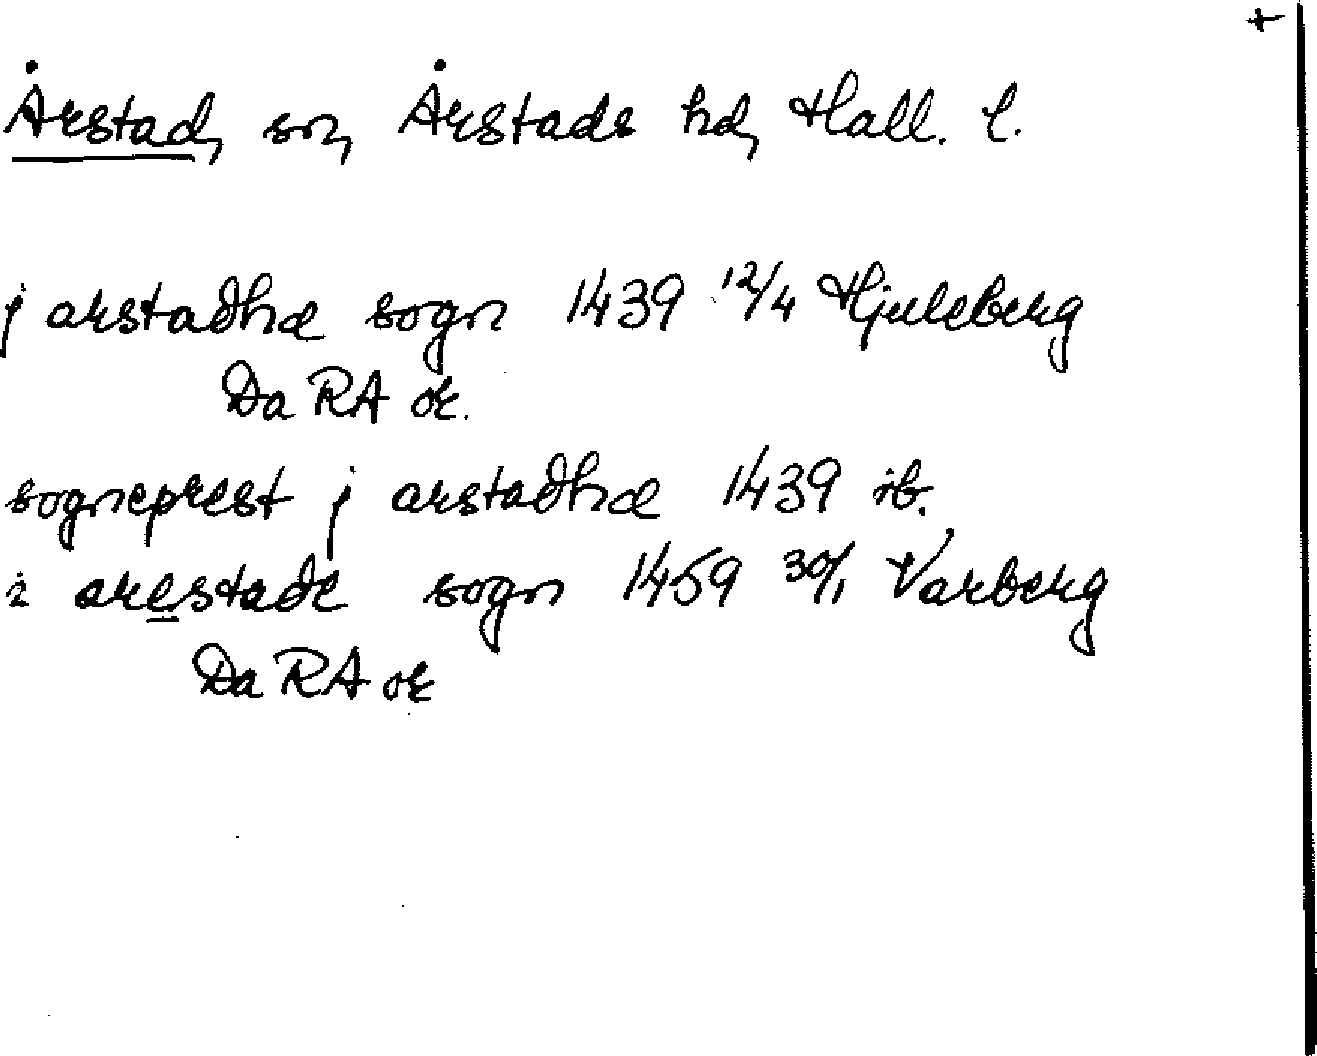 +
Årstad, sn, Årstads hd, Hall. l.
j arstadhæ sogn 1439 12/4 Hjuleberg
Da RA or.
sogneprest j arstadhæ 1439 ib.
i arestade sogn 1459 30/1 Varberg
Da RA or